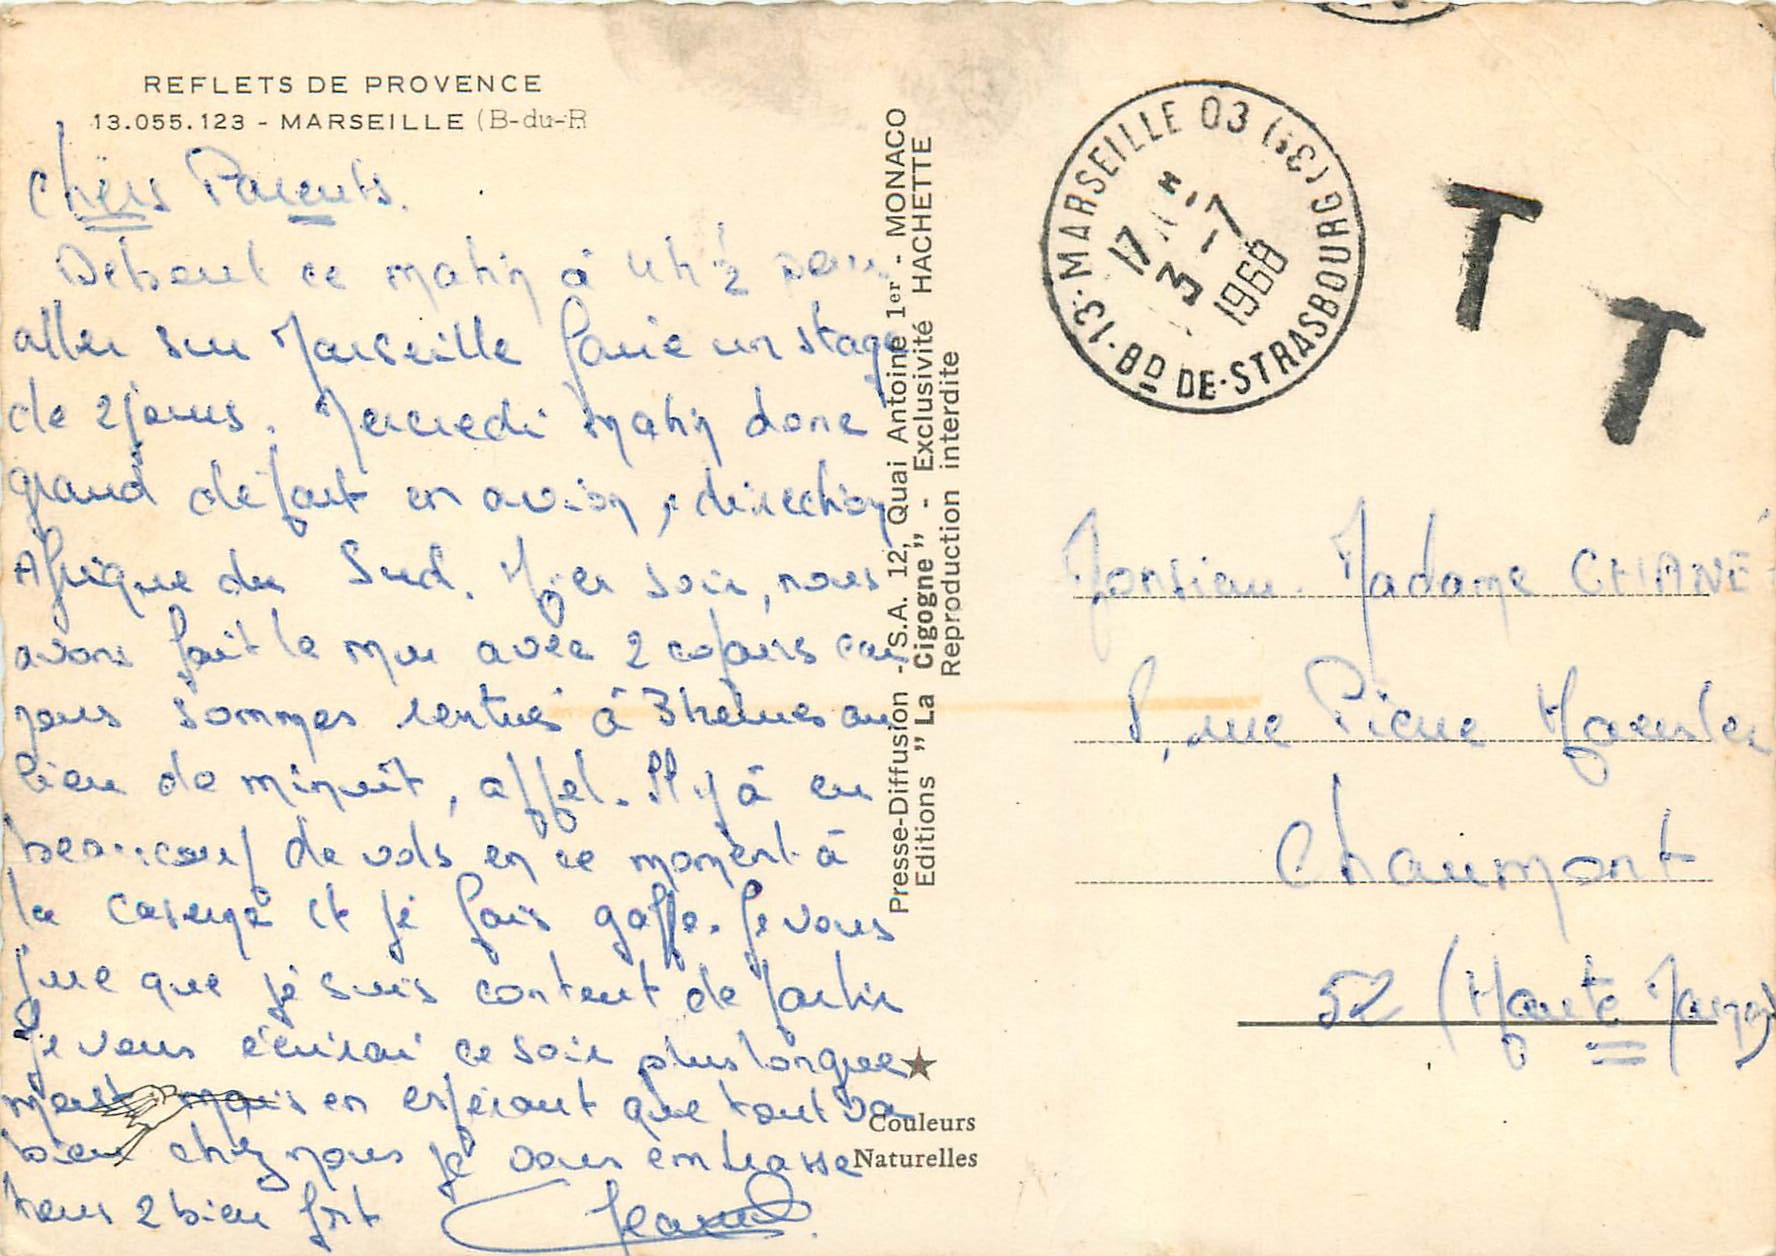 REFLETS DE PROVENCE
13.055.123 - MARSEILLE (B-du-R
Chers Parents.
Debout ce matin à 4h ½ pour
aller sur Marseille faire un stage
de 2 jours. Mercredi matin donc
grand départ en avion, direction
Afrique du Sud. Hier soir, nous
avons fait le mur avec 2 copains car
nous sommes rentrés à 3 heures au
lieu de minuit, appel. Il y à eu
beaucoup de vols en ce moment à
la caserne et je fais gaffe. Je vous
jure que je suis content de partir
Je vous écrirai ce soir plus longue
ment mais en espérant que tout va
bien chez nous je vous embrasse
tous 2 bien fort
Presse-Diffusion - S.A. 12, Quai Antoine 1er - MONACO
Editions " La Cigogne " - Exclusivité HACHETTE
Reproduction interdite
★
Couleurs
Naturelles
13 · MARSEILLE 03 (3e) BD DE STRASBOURG
17 H
3 - 7
1968
T
T
Monsieur. Madame CHANÉ
8, rue Pierre
Chaumont
52 (Haute Marne)